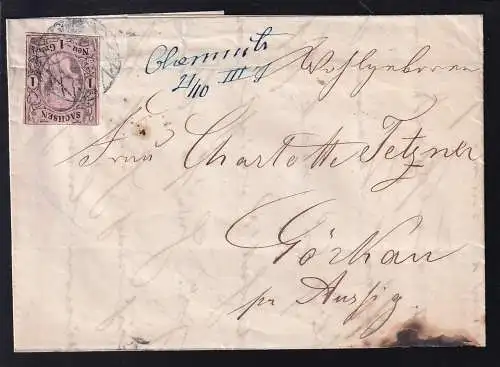 Neu-Grosch.
1
1
1
SACHSEN
Chemnitz
21/10 III
Wohlgeboren
Frau Charlotte Tetzner
Görkau
pr Aussig.